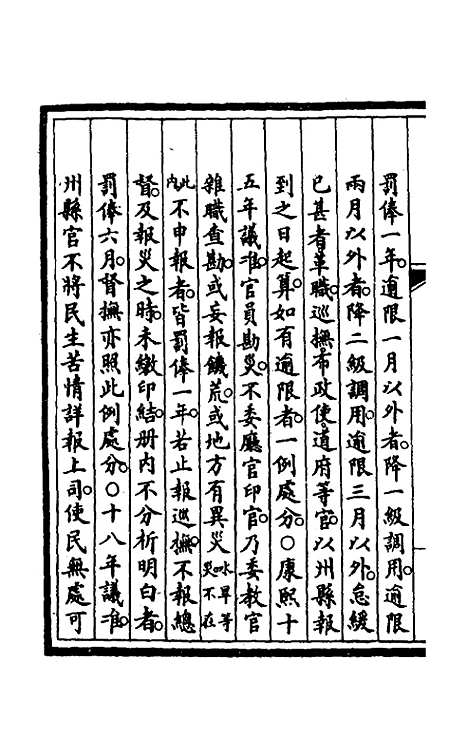 罰俸一年。逾限一月以外者。降一級調用。逾限
兩月以外者。降二級調用。逾限三月以外。怠緩
已甚者革職巡撫布政使道府等官。以州縣報
到之日起算。如有逾限者。一例處分。○康熙十
五年議准。官員勘災。不委廳官印官。乃委教官
雜職查勘。或妄報饑荒。或地方有異災水旱等災不在
此內不申報者。皆罰俸一年。若止報巡撫。不報總
督。及報災之時。未繳印結。册內不分析明白者。
罰俸六月。督撫亦照此例處分。○十八年議准。
州縣官不將民生苦情詳報上司。使民無處可